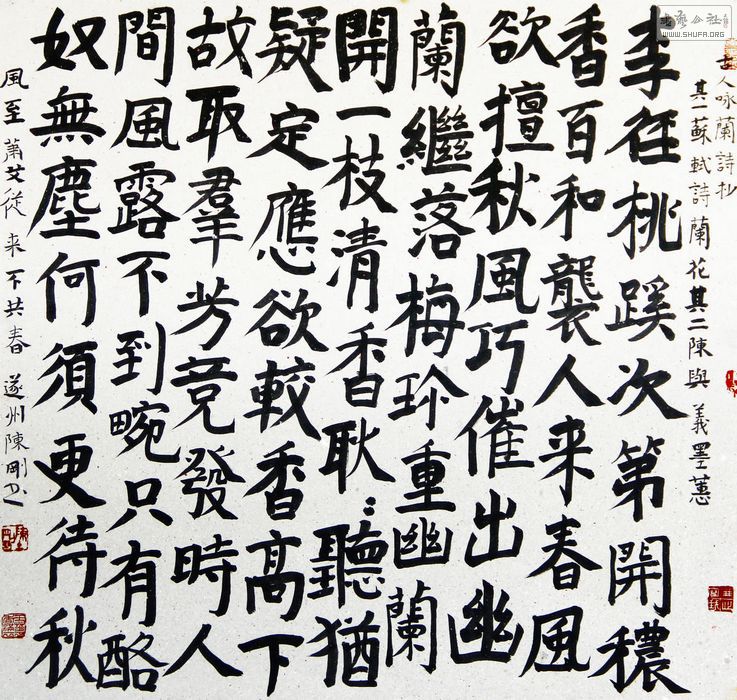 書藝公社
WWW.SHUFA.ORG
古人咏蘭詩抄
其一蘇軾詩蘭花其二陳與義墨蕙
李徑桃蹊次第開穠
香百和襲人来春風
欲擅秋風巧催出幽
蘭繼落梅珍重幽蘭
開一枝清香耿〻聽猶
疑定應欲較香高下
故取羣芳竞發時人
間風露不到畹只有酪
奴無塵何須更待秋
風至蕭艾從来不共春遂州陳剛书